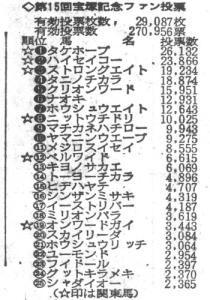 ◇第15回宝塚記念ファン投票
有効投票枚数, 29,087枚
有効投票数 270,956票
順位 馬 名 投票数
☆❶タケホープ 26,182
☆❷ハイセイコー 23,866
☆❸ストロングエイト 19,234
❹タニノチカラ 18,874
❺イチフジイサミ 14,901
❻ナオキ 12,931
❼ホウシュウエイト 12,643
☆⑧ニットウチドリ 10,025
⑨マチカネハチロー 9,943
⑩ヤマブキオー 9,275
⑪メジロスイセイ 8,555
☆⑫ベルワイド 6,615
⑬キヨノサカエ 6,069
⑭トーヨーチカラ 4,896
⑮ヒデハヤテ 4,707
⑯シンザンミサキ 4,319
⑰ストロリバー 4,187
⑱ミリオンパラ 3,619
☆⑲オンワードガイ 3,443
⑳スカイリーダ 3,084
㉑ホウシュウリッチ 3,064
㉒ユーモンド 2,954
㉓ワイドール 2,397
㉔グットキラメキ 2,370
㉕シャダイオー 2,365
(☆印は関東馬)